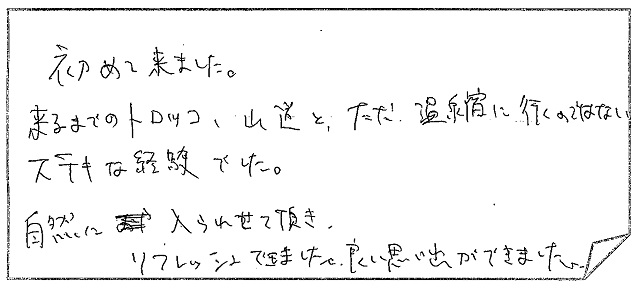 初めて来ました。
来るまでのトロッコ、山道と、ただ温泉宿に行くのではない
ステキな経験でした。
自然に 入られせて頂き、
リフレッシュできました。良い思い出ができました。